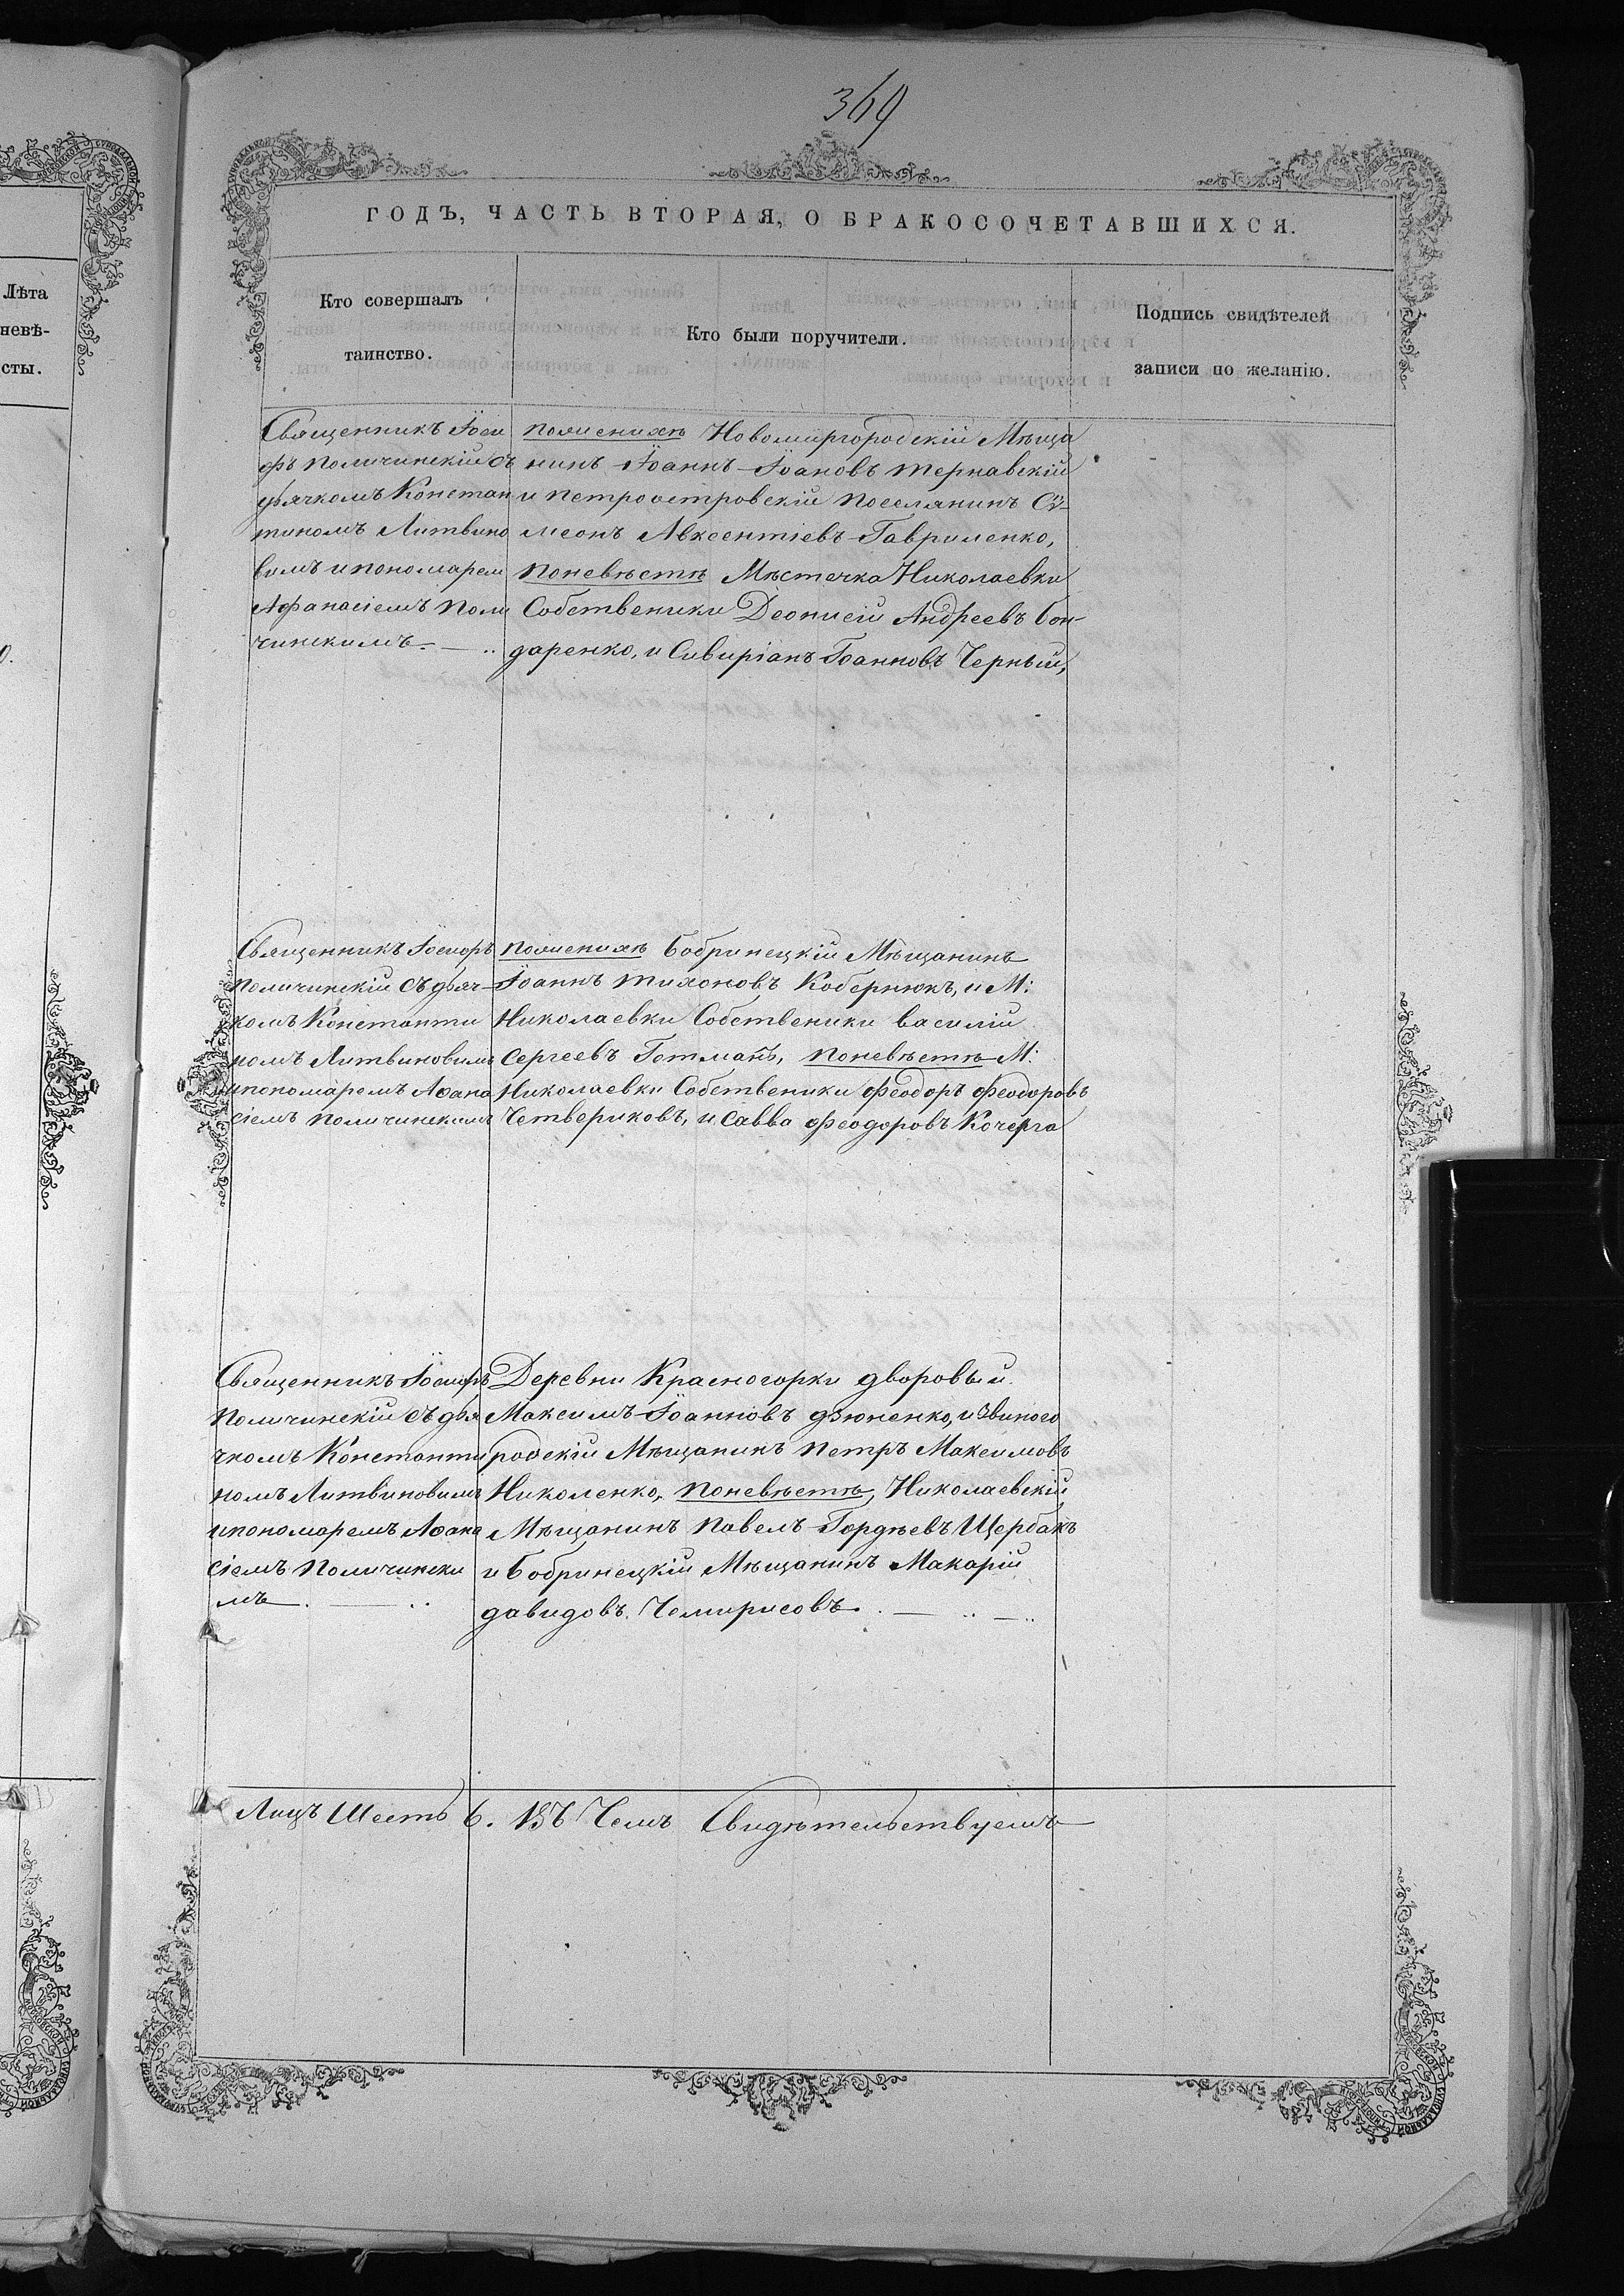 369
ГОДЪ, ЧАСТЬ ВТОРАЯ, О БРАКОСОЧЕТАВШИХСЯ.
Лѣта
невѣ-
сты.
Кто совершалъ
таинство.
Кто были поручители.
Подпись свидѣтелей
записи по желанію.
Священникъ Іоси
фъ Поличинскій съ
дьячкомъ Констан
тиномъ Литвино
вымъ и пономарем
Афанасіемъ Поли
чинскимъ.
По женихѣ Новомиргородскій Мѣща
нинъ Іоаннъ Іоановъ Тернавскій
и Петроостровскій поселянинъ Сѵ-
меонъ Авксентіевъ Гавриленко,
По невѣстѣ Мѣстечка Николаевки
Собственики Деонисій Андреевъ Бон-
даренко, и Сивиріанъ Іоанновъ Черный,
Священникъ Іосифъ
Поличинскій съ дьяч-
комъ Константи
номъ Литвиновимъ
и пономаремъ Аѳана
сіемъ Поличинскимъ
По женихѣ Бобринецкій Мѣщанинъ
Іоаннъ Тихоновъ Кобернюкъ, и М:
Николаевки Собственики Василій
Сергеевъ Гетманъ, По невѣстѣ М:
Николаевки Собственики Феодоръ Феодоровъ
Четвериковъ, и Савва Феодоровъ Кочерга
Священникъ Іосифъ
Поличинскій съ дья
чкомъ Константи
номъ Литвиновимъ
и пономаремъ Аѳана
сіемъ Поличински
мъ.
Деревни Красногорки дворовый
Максимъ Іоанновъ Дзюненко, и Звиного
родскій Мѣщанинъ Петръ Максимовъ
Николенко, По невѣстѣ, Николаевскій
Мѣщанинъ Павелъ Гордѣевъ Щербакъ
и Бобринецкій Мѣщанинъ Макарій
Давидовъ Чемирисовъ.
Лицъ Шесть 6. Въ Чемъ Свидѣтельствуемъ